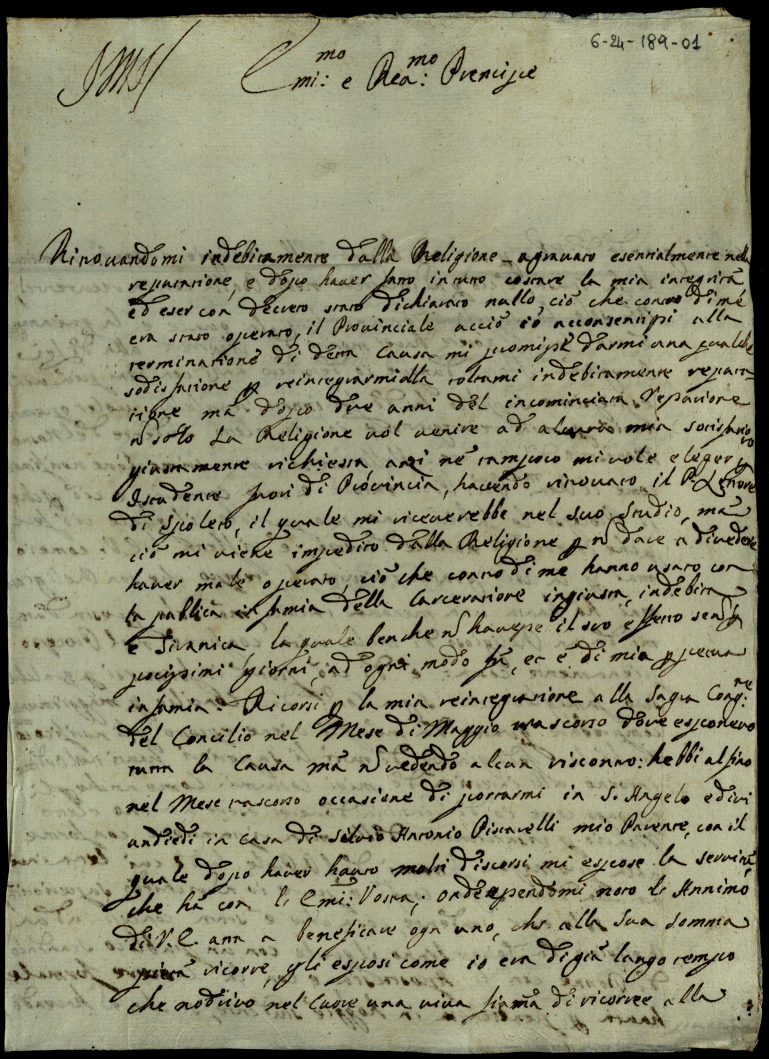 6-24-189-01
JMJ
Emi:mo e Rea:mo Prencipe
Ritrovandomi indebitamente dalla Religione agravato esentialmente nella
reputatione, e dopo haver fatto in tutto costare la mia integrità
ed eser con decreto stato dichiarato nullo, ciò che contro di mè
era stato operato, il Provinciale acciò io acconsentissi alla
terminatione di detta Causa mi promise darmi una qualche
sodisfatione p reintegrarmi alla toltami indebitamente reputa-
tione mà dopo due anni del incominciata
nõ solo La Religione vol venire ad mia sodisfatio
giustamente richiesta, anzi nè tampoco mi vole eleger p
Studente fuori di Provincia, havendo ritrovato il P. Lettore
di Spoleto, il quale mi riceverebbe nel suo Studio, mà
ciò mi viene impedito dalla Religione p nõ dare a divedere
haver male operato, ciò che contro di me hanno usato con
la publica infamia della Carceratione ingiusta, indebita
e Tiranica, la quale benche nõ havesse il suo effetto se nõ p
pochissimi giorni, ad ogni modo fù, et è di mia p petua
infamia. Ricorsi p la mia reintegratione alla Sagra Cong:ne
del Concilio nel Mese di Maggio trascorso dove esponevo
tutta la Causa mà nõ vedendo alcun riscontro: hebbi al fine
nel Mese trascorso occasione di portarmi in S. Angelo ed ivi
andiedi in casa di Silvio Antonio Piscavelli mio Parente, con il
quale dopo haver hauto molti discorsi mi espose la servitù,
che hà con le Emi: Vostra, ond' noto le Annimo
di V. E. atta a beneficare ogn uno, che alla Sua somma
pietà ricorre, gli esposi come io era di già lungo tempo
che nodrivo nel Cuore una viva fiama di ricorrere alla